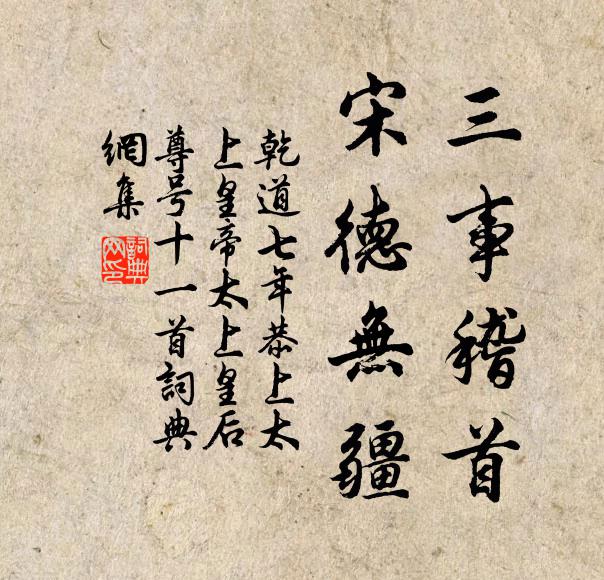 三事稽首
宋德無疆
乾道七年恭上太
上皇帝太上皇后
尊号十一首詞典
網集
詞典
网印